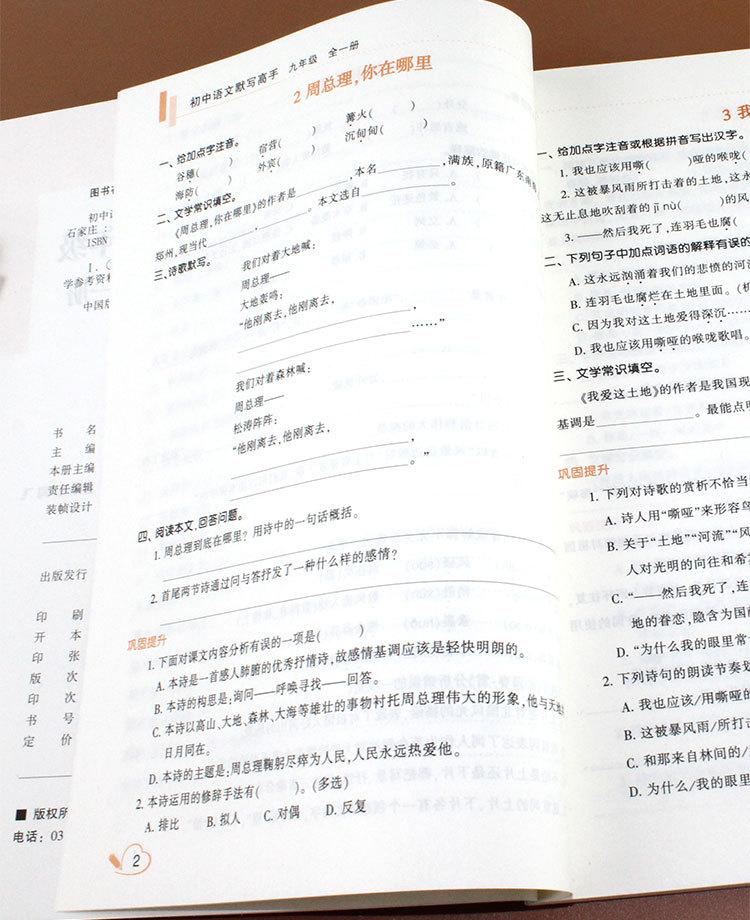 初中语文默写高手 九年级 全一册
2 周总理,你在哪里
一、给加点字注音。
谷穗( ) 宿营( ) 篝火( )
海防( ) 外宾( ) 沉甸甸( )
二、文学常识填空。
《周总理,你在哪里》的作者是________,本名________,满族,原籍广东
郑州,现当代________。本文选自________。
三、诗歌默写。
我们对着大地喊:
周总理——
大地轰鸣:
“他刚离去,他刚离去,
________,
________……”
我们对着森林喊:
周总理——
松涛阵阵:
“他刚离去,他刚离去,
________,
________。”
四、阅读本文,回答问题。
1. 周总理到底在哪里？用诗中的一句话概括。
2. 首尾两节诗通过问与答抒发了一种什么样的感情？
巩固提升
1. 下面对课文内容分析有误的一项是( )
A. 本诗是一首感人肺腑的优秀抒情诗,故感情基调应该是轻快明朗的。
B. 本诗的构思是:询问——呼唤寻找——回答。
C. 本诗以高山、大地、森林、大海等雄壮的事物衬托周总理伟大的形象,他与天地
日月同在。
D. 本诗的主题是:周总理鞠躬尽瘁为人民,人民永远热爱他。
2. 本诗运用的修辞手法有( )。(多选)
A. 排比 B. 拟人 C. 对偶 D. 反复
2
3 我
一、给加点字注音或根据拼音写出汉字。
1. 我也应该用嘶( )哑的喉咙(
2. 这被暴风雨所打击着的土地,这永
这无止息地吹刮着的 jī nù( )的风
3. ——然后我死了,连羽毛也腐(
二、下列句子中加点词语的解释有误的
A. 这永远汹涌着我们的悲愤的河流
B. 连羽毛也腐烂在土地里面。(
C. 因为我对这土地爱得深沉……
D. 我也应该用嘶哑的喉咙歌唱。
三、文学常识填空。
《我爱这土地》的作者是我国现
基调是________。最能点明
巩固提升
1. 下列对诗歌的赏析不恰当
A. 诗人用“嘶哑”来形容鸟
B. 关于“土地”“河流”“风
人对光明的向往和希
C. “——然后我死了,连
地的眷恋,隐含为国
D. “为什么我的眼里常
2. 下列诗句的朗读节奏划
A. 我也应该/用嘶哑的
B. 这被暴风雨/所打击
C. 和那来自林间的/
D. 为什么/我的眼里
图书在
初中语
石家庄:
ISBN
学参考资料
中国版
书 名
主 编
本册主编
责任编辑
装帧设计
出版发行
印 刷
开 本
印 张
版 次
印 次
书 号
定 价
■ 版权所
电话: 03